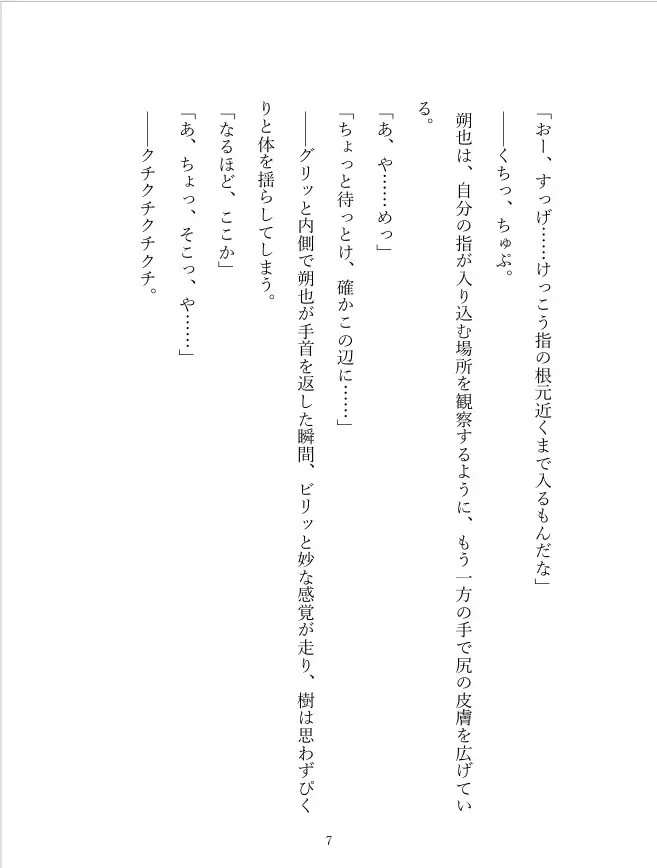 「おー、すっげ……けっこう指の根元近くまで入るもんだな」
――くちっ、ちゅぷ。
朔也は、自分の指が入り込む場所を観察するように、もう一方の手で尻の皮膚を広げてい
る。
「あ、や……めっ」
「ちょっと待っとけ、確かこの辺に……」
――グリッと内側で朔也が手首を返した瞬間、ビリッと妙な感覚が走り、樹は思わずぴく
りと体を揺らしてしまう。
「なるほど、ここか」
「あ、ちょっ、そこっ、や……」
――クチクチクチクチ。
7